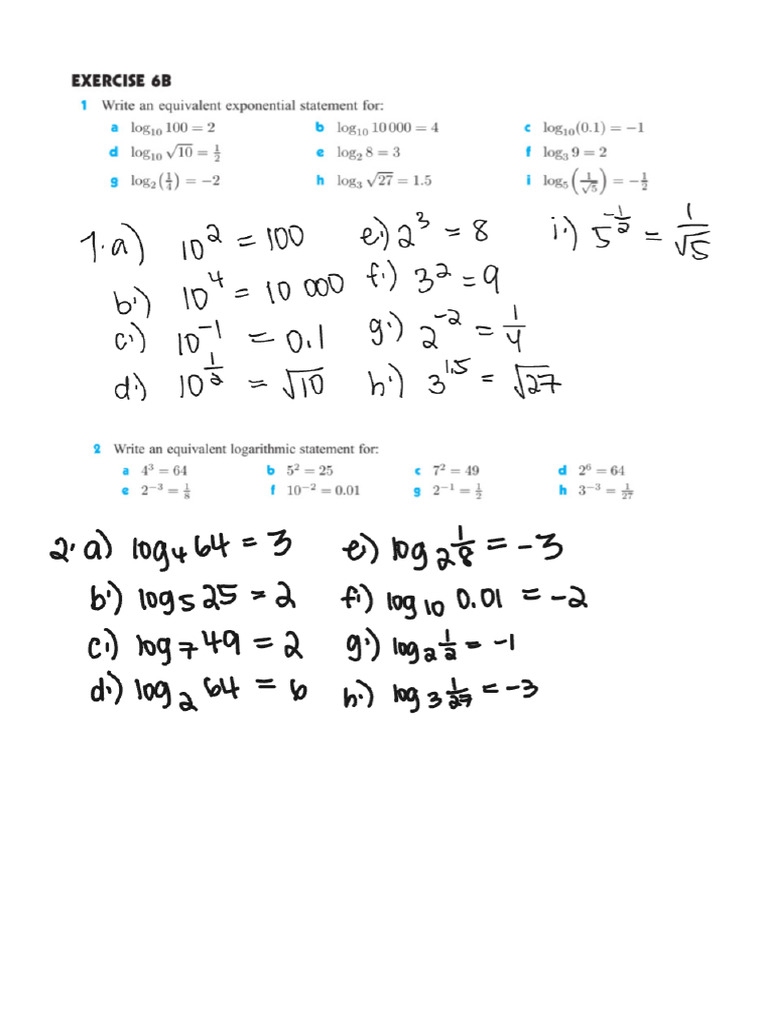 EXERCISE 6B
1 Write an equivalent exponential statement for:
a log₁₀ 100 = 2 b log₁₀ 10 000 = 4 c log₁₀(0.1) = −1
d log₁₀ √10 = 1/2 e log₂ 8 = 3 f log₃ 9 = 2
g log₂(1/4) = −2 h log₃ √27 = 1.5 i log₅(1/√5) = −1/2
1. a) 10² = 100 e.) 2³ = 8 i.) 5^(-1/2) = 1/√5
b.) 10⁴ = 10 000 f.) 3² = 9
c.) 10⁻¹ = 0.1 g.) 2⁻² = 1/4
d.) 10^(1/2) = √10 h.) 3^(1.5) = √27
2 Write an equivalent logarithmic statement for:
a 4³ = 64 b 5² = 25 c 7² = 49 d 2⁶ = 64
e 2⁻³ = 1/8 f 10⁻² = 0.01 g 2⁻¹ = 1/2 h 3⁻³ = 1/27
2. a) log₄ 64 = 3 e.) log₂ 1/8 = −3
b.) log₅ 25 = 2 f.) log₁₀ 0.01 = −2
c.) log₇ 49 = 2 g.) log₂ 1/2 = −1
d.) log₂ 64 = 6 h.) log₃ 1/27 = −3